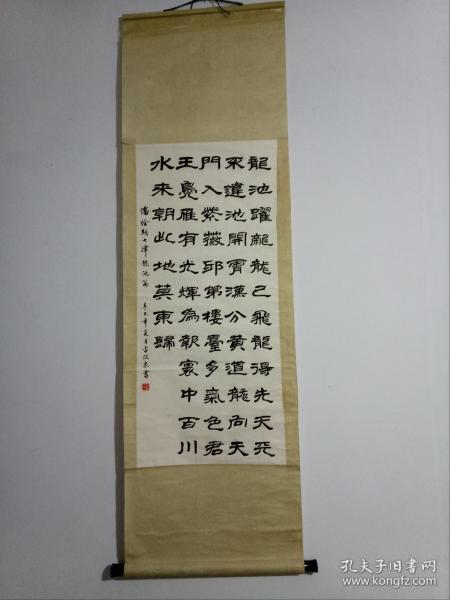 龍池躍龍龍已飛龍得先天天
不違池開霄漢分黃道龍向天
門入紫薇邸第樓臺多氣色君
王鳧雁有光輝為報寰中百川
水來朝此地莫東歸
佺期七律龍池篇 辛巳年夏月書
孔夫子旧书网
www.kongfz.com